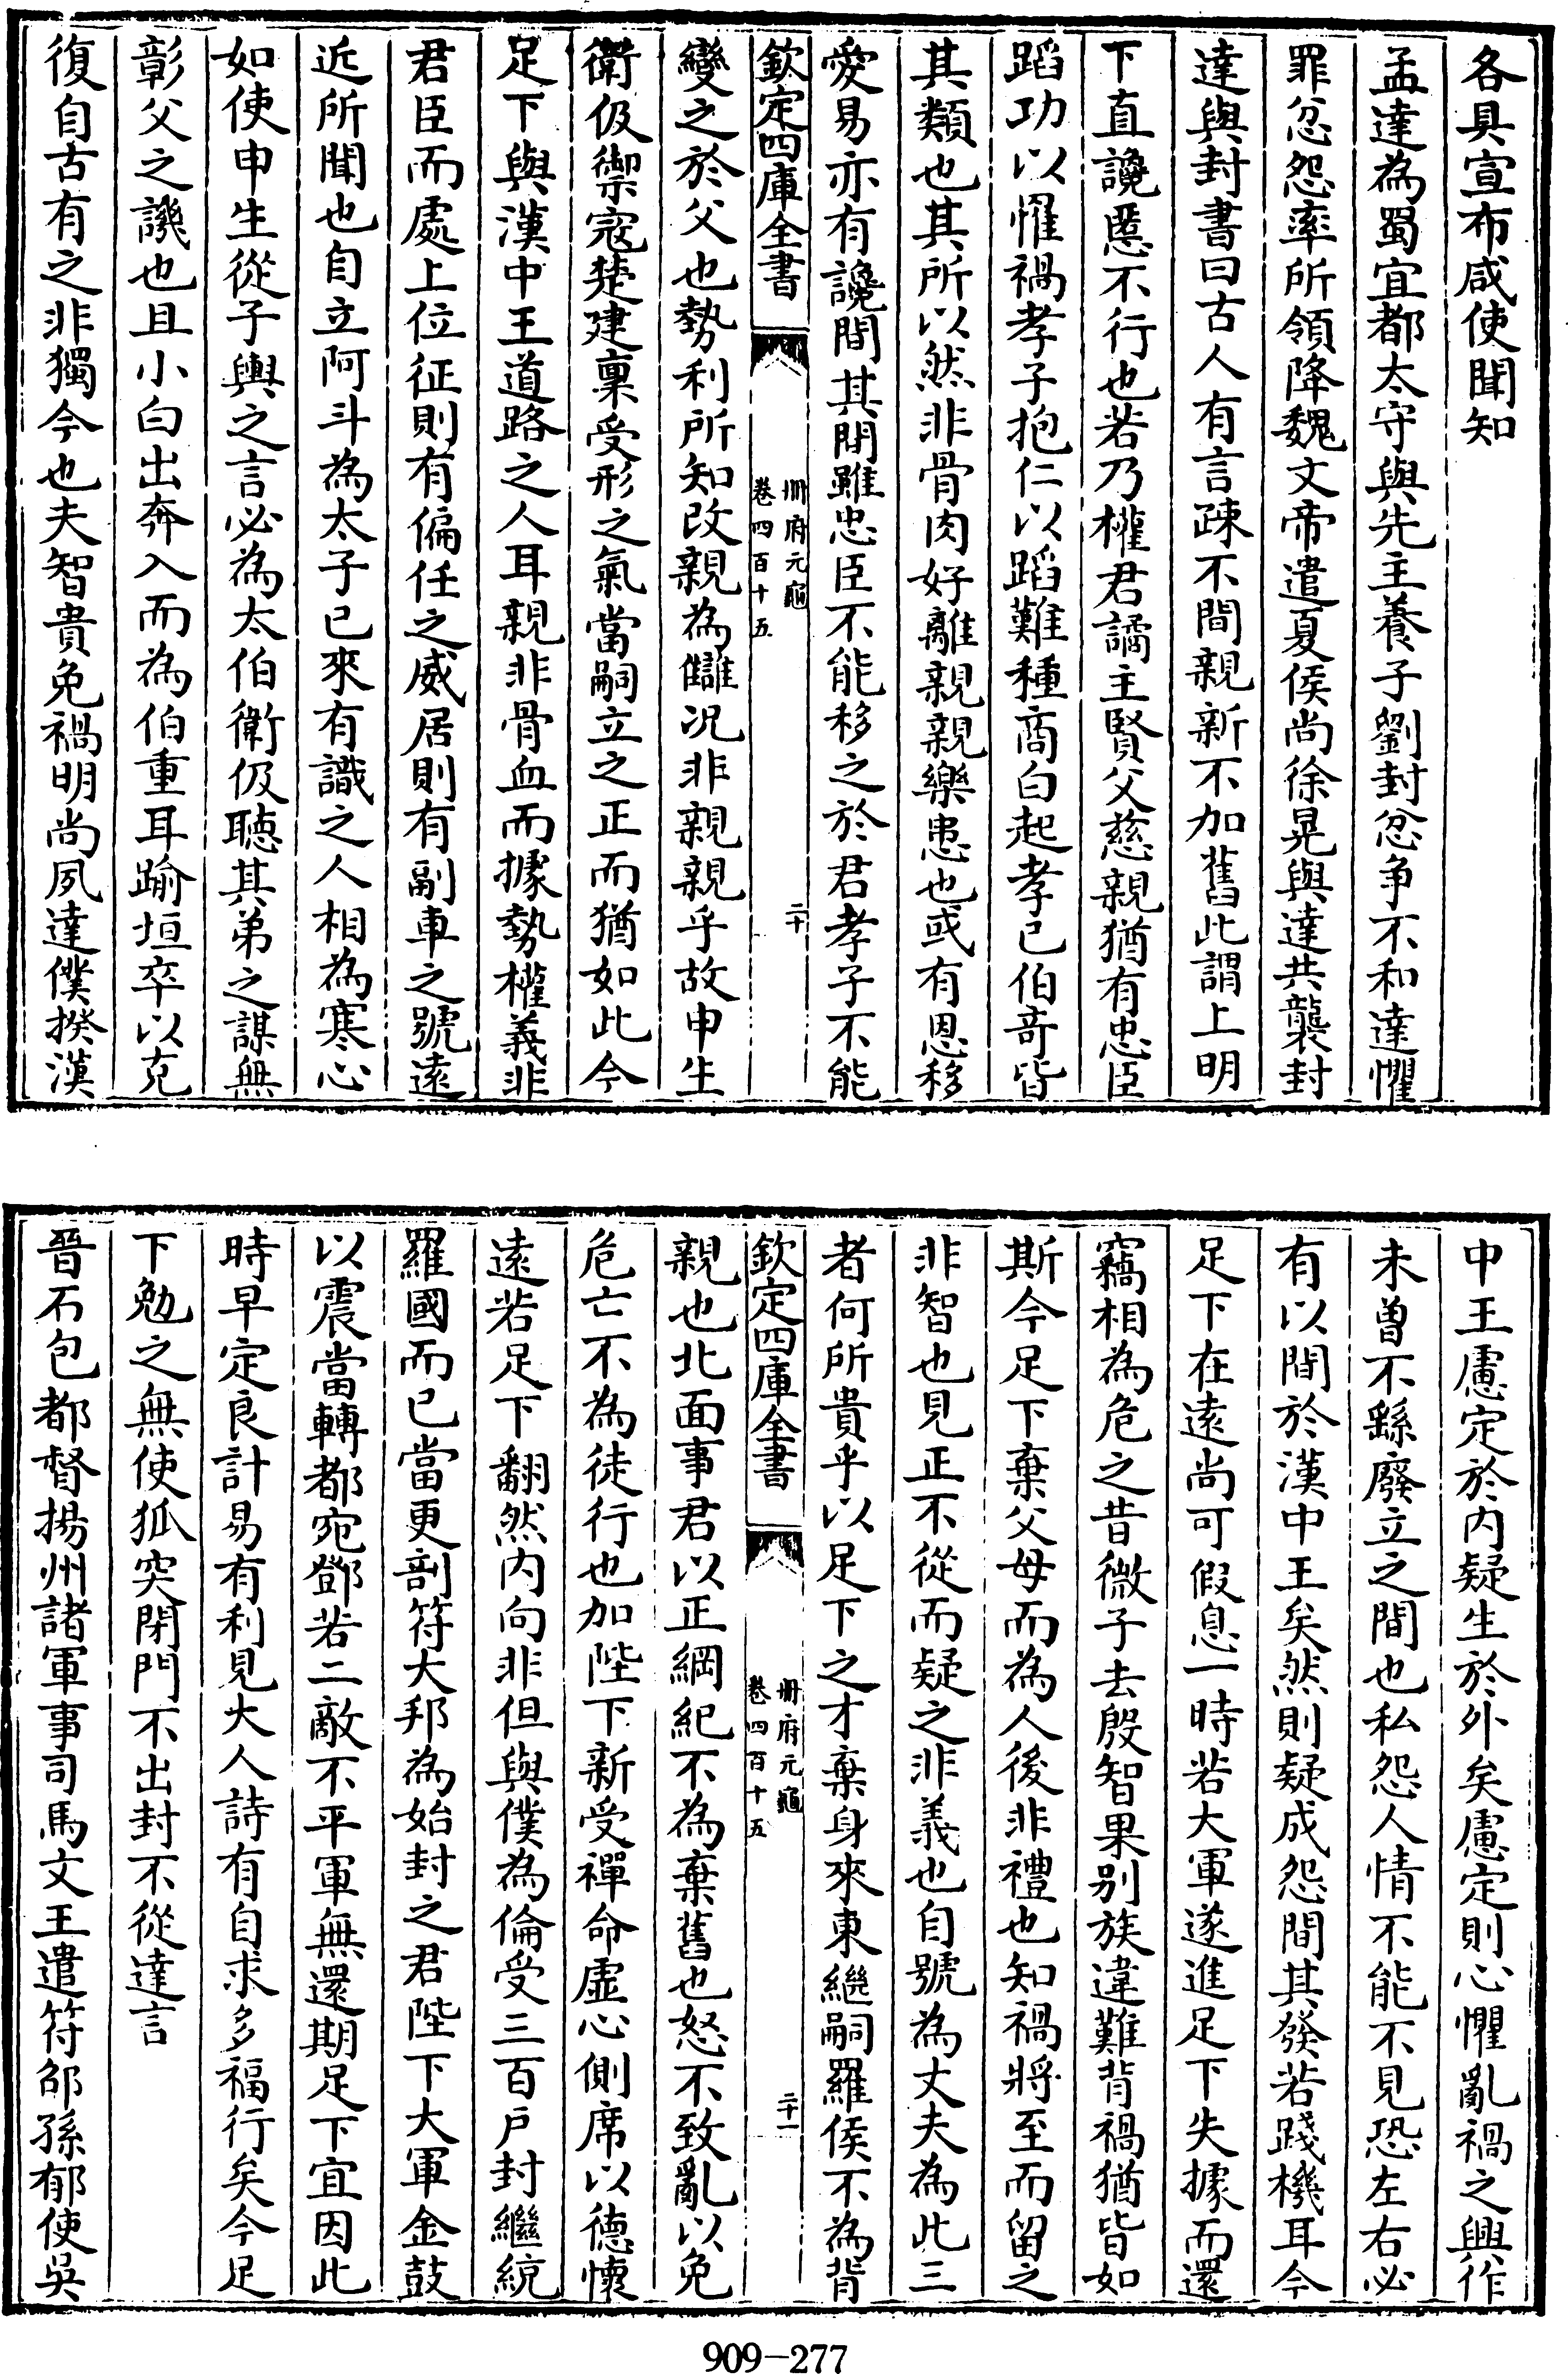 各具宣布咸使聞知
孟達為蜀宜都太守與先主養子劉封忿爭不和達懼
罪忿怨率所領降魏文帝遣夏侯尚徐晃與達共襲封
達與封書曰古人有言疎不間親新不加舊此謂上明
下直讒慝不行也若乃權君譎主賢父慈親猶有忠臣
蹈功以懼禍孝子抱仁以蹈難種商白起孝己伯奇皆
其類也其所以然非骨肉好離親親樂患也或有恩移
愛易亦有讒間其間雖忠臣不能移之於君孝子不能
欽定四庫全書
冊府元龜
卷四百十五
二十
變之於父也勢利所知改親為讎況非親親乎故申生
衛伋禦寇楚建稟受形之氣當嗣立之正而猶如此今
足下與漢中王道路之人耳親非骨血而據勢權義非
君臣而處上位征則有偏任之威居則有副車之號遠
近所聞也自立阿斗為太子已來有識之人相為寒心
如使申生從子輿之言必為太伯衛伋聽其弟之謀無
彰父之譏也且小白出奔入而為伯重耳踰垣卒以克
復自古有之非獨今也夫智貴免禍明尚夙達僕揆漢
中王慮定於內疑生於外矣慮定則心懼亂禍之興作
未曾不繇廢立之間也私怨人情不能不見恐左右必
有以間於漢中王矣然則疑成怨間其發若踐機耳今
足下在遠尚可假息一時若大軍遂進足下失據而還
竊相為危之昔微子去殷智果別族違難背禍猶皆如
斯今足下棄父母而為人後非禮也知禍將至而留之
非智也見正不從而疑之非義也自號為丈夫為此三
者何所貴乎以足下之才棄身來東繼嗣羅侯不為背
欽定四庫全書
冊府元龜
卷四百十五
二十一
親也北面事君以正綱紀不為棄舊也怒不致亂以免
危亡不為徒行也加陛下新受禪命虛心側席以德懷
遠若足下翻然內向非但與僕為倫受三百戶封繼統
羅國而已當更剖符大邦為始封之君陛下大軍金鼓
以震當轉都宛鄧若二敵不平軍無還期足下宜因此
時早定良計易有利見大人詩有自求多福行矣今足
下勉之無使狐突閉門不出封不從達言
晉石包都督揚州諸軍事司馬文王遣符邵孫郁使吳
909-277